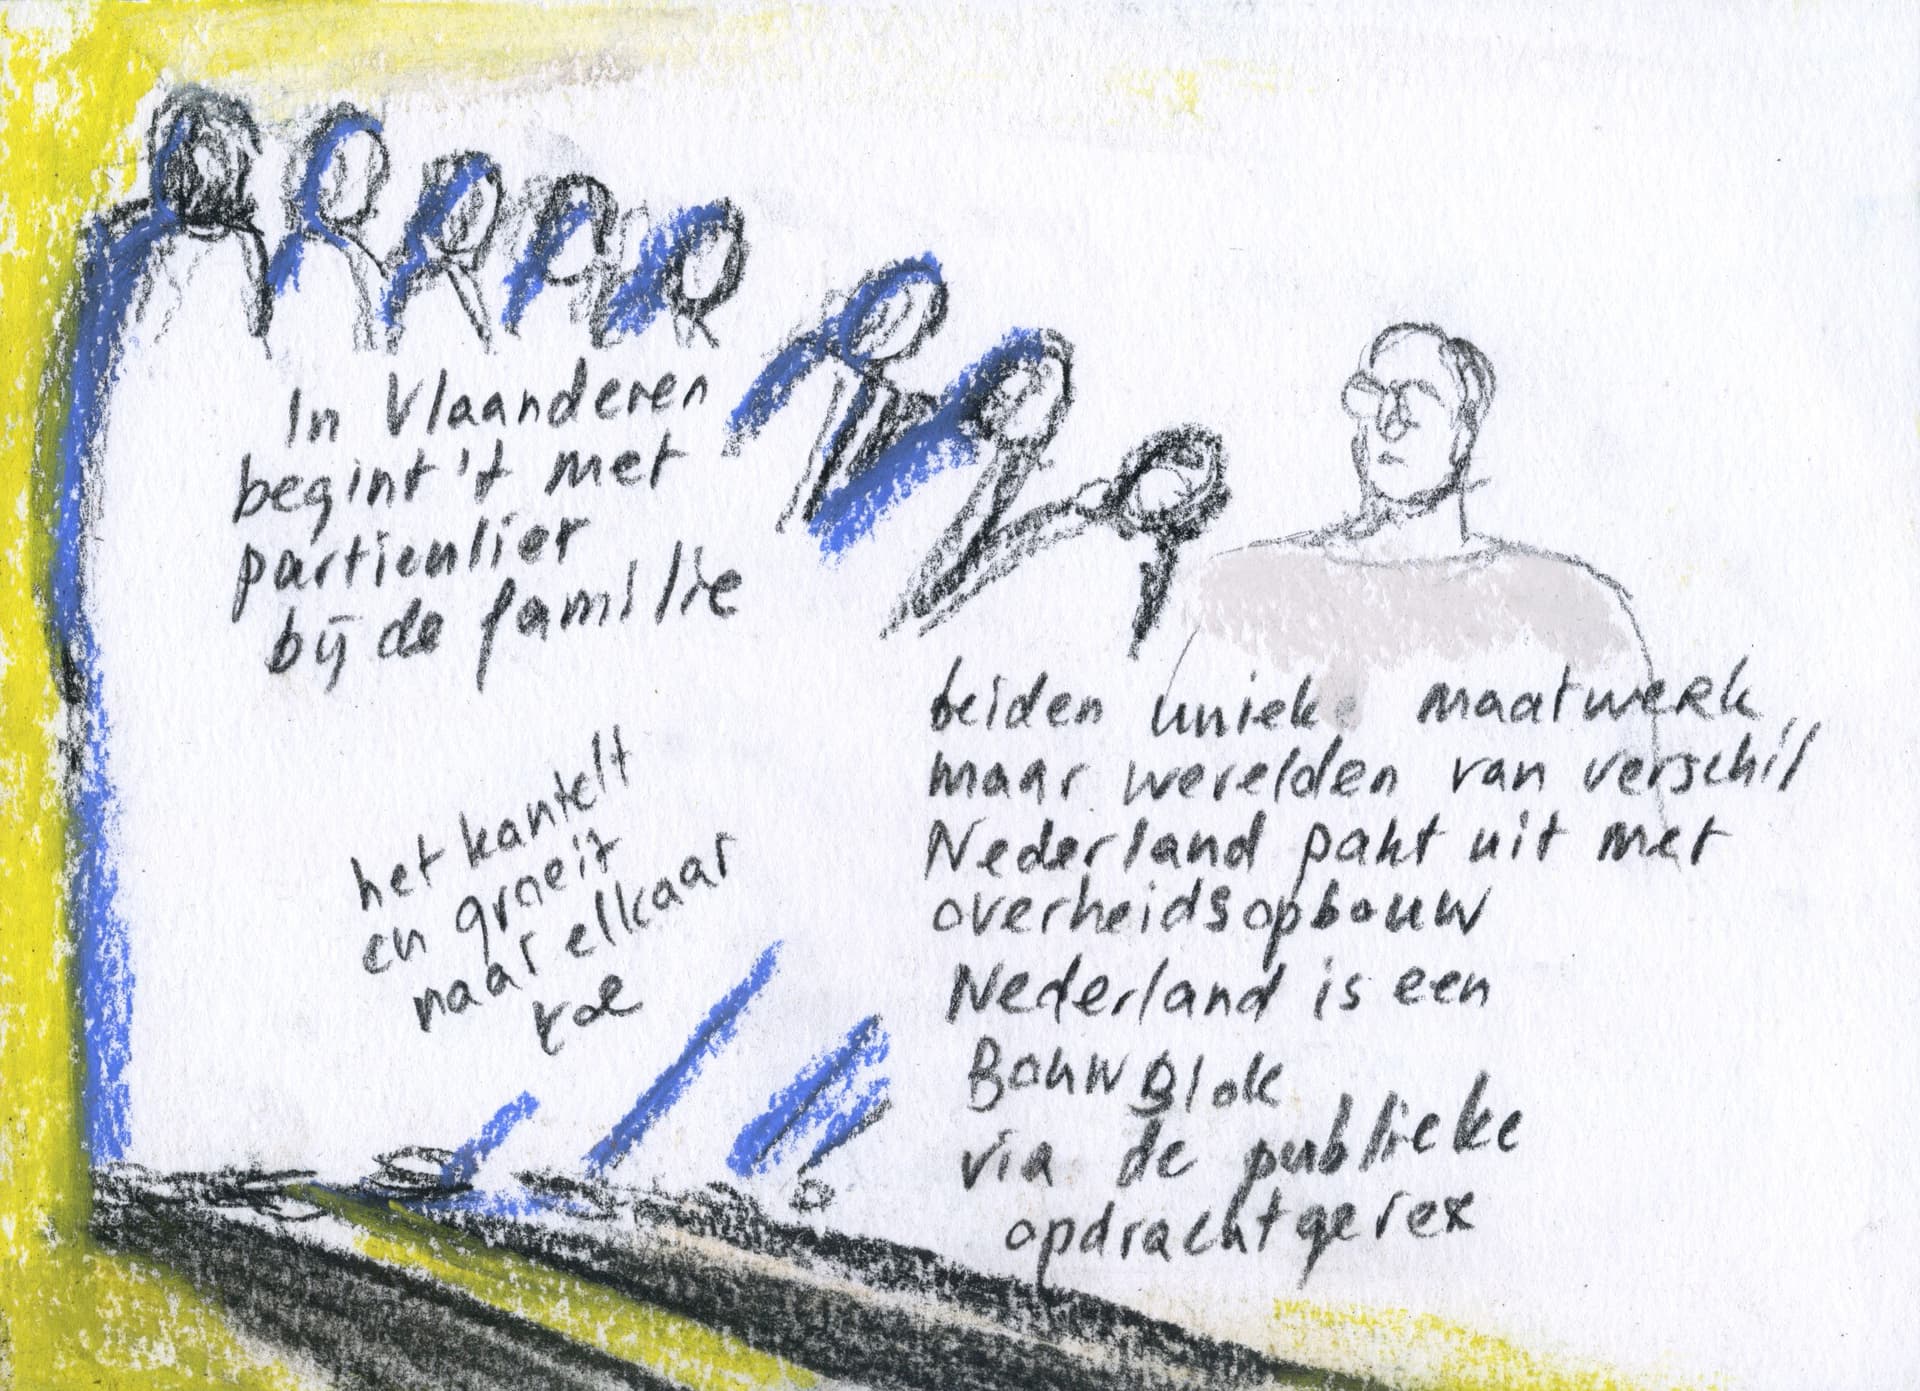 In Vlaanderen
begint 't met
particulier
bij de familie
het kantelt
en groeit
naar elkaar
toe
beiden unieke maatwerk,,
maar werelden van verschil
Nederland pakt uit met
overheidsopbouw
Nederland is een
BouwBlok
via de publieke
opdrachtgever